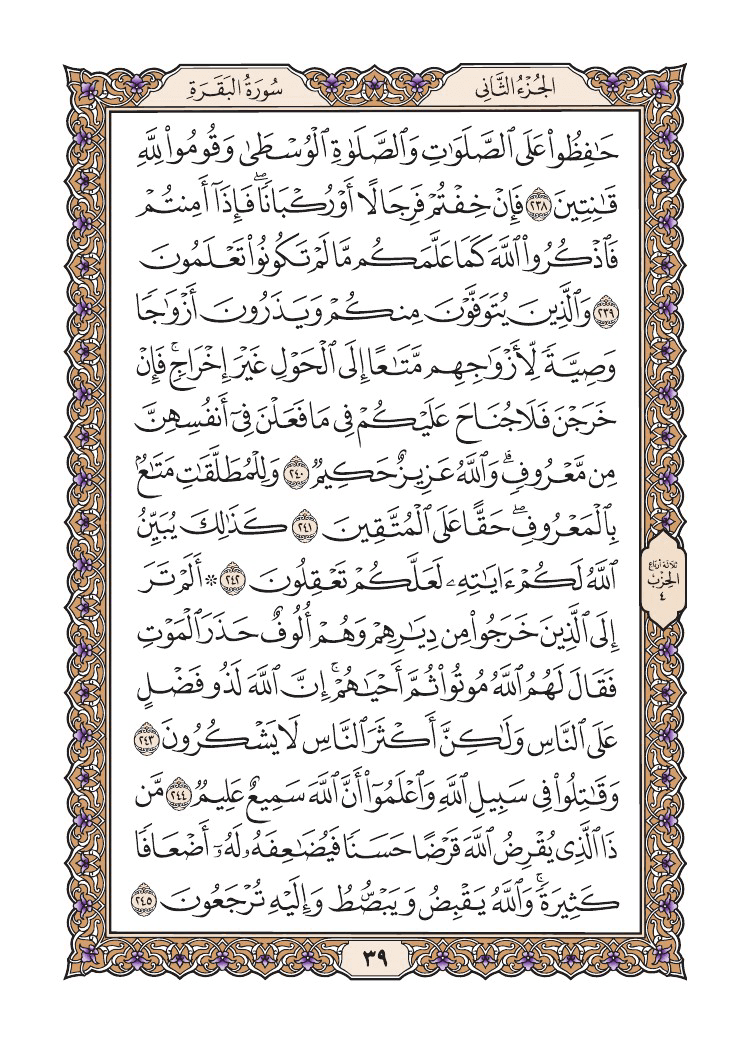 الجُزْءُ الثَّانِي
سُورَةُ البَقَرَةِ
حَٰفِظُواْ عَلَى ٱلصَّلَوَٰتِ وَٱلصَّلَوٰةِ ٱلۡوُسۡطَىٰ وَقُومُواْ لِلَّهِ
قَٰنِتِينَ ٢٣٨ فَإِنۡ خِفۡتُمۡ فَرِجَالًا أَوۡ رُكۡبَانٗاۖ فَإِذَآ أَمِنتُمۡ
فَٱذۡكُرُواْ ٱللَّهَ كَمَا عَلَّمَكُم مَّا لَمۡ تَكُونُواْ تَعۡلَمُونَ
٢٣٩ وَٱلَّذِينَ يُتَوَفَّوۡنَ مِنكُمۡ وَيَذَرُونَ أَزۡوَٰجٗا
وَصِيَّةٗ لِّأَزۡوَٰجِهِم مَّتَٰعًا إِلَى ٱلۡحَوۡلِ غَيۡرَ إِخۡرَاجٖۚ فَإِنۡ
خَرَجۡنَ فَلَا جُنَاحَ عَلَيۡكُمۡ فِي مَا فَعَلۡنَ فِيٓ أَنفُسِهِنَّ
مِن مَّعۡرُوفٖۗ وَٱللَّهُ عَزِيزٌ حَكِيمٞ ٢٤٠ وَلِلۡمُطَلَّقَٰتِ مَتَٰعُۢ
بِٱلۡمَعۡرُوفِۖ حَقًّا عَلَى ٱلۡمُتَّقِينَ ٢٤١ كَذَٰلِكَ يُبَيِّنُ
ٱللَّهُ لَكُمۡ ءَايَٰتِهِۦ لَعَلَّكُمۡ تَعۡقِلُونَ ٢٤٢ ۞ أَلَمۡ تَرَ
إِلَى ٱلَّذِينَ خَرَجُواْ مِن دِيَٰرِهِمۡ وَهُمۡ أُلُوفٌ حَذَرَ ٱلۡمَوۡتِ
فَقَالَ لَهُمُ ٱللَّهُ مُوتُواْ ثُمَّ أَحۡيَٰهُمۡۚ إِنَّ ٱللَّهَ لَذُو فَضۡلٍ
عَلَى ٱلنَّاسِ وَلَٰكِنَّ أَكۡثَرَ ٱلنَّاسِ لَا يَشۡكُرُونَ ٢٤٣
وَقَٰتِلُواْ فِي سَبِيلِ ٱللَّهِ وَٱعۡلَمُوٓاْ أَنَّ ٱللَّهَ سَمِيعٌ عَلِيمٞ ٢٤٤ مَّن
ذَا ٱلَّذِي يُقۡرِضُ ٱللَّهَ قَرۡضًا حَسَنٗا فَيُضَٰعِفَهُۥ لَهُۥٓ أَضۡعَافٗا
كَثِيرَةٗۚ وَٱللَّهُ يَقۡبِضُ وَيَبۡصُۜطُ وَإِلَيۡهِ تُرۡجَعُونَ ٢٤٥
ثلاثة أرباع
الحِزْب
٤
٣٩